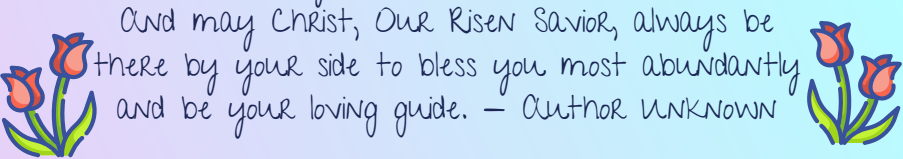 And may Christ, Our Risen Savior, always be
there by your side to bless you most abundantly
and be your loving guide. — Author Unknown